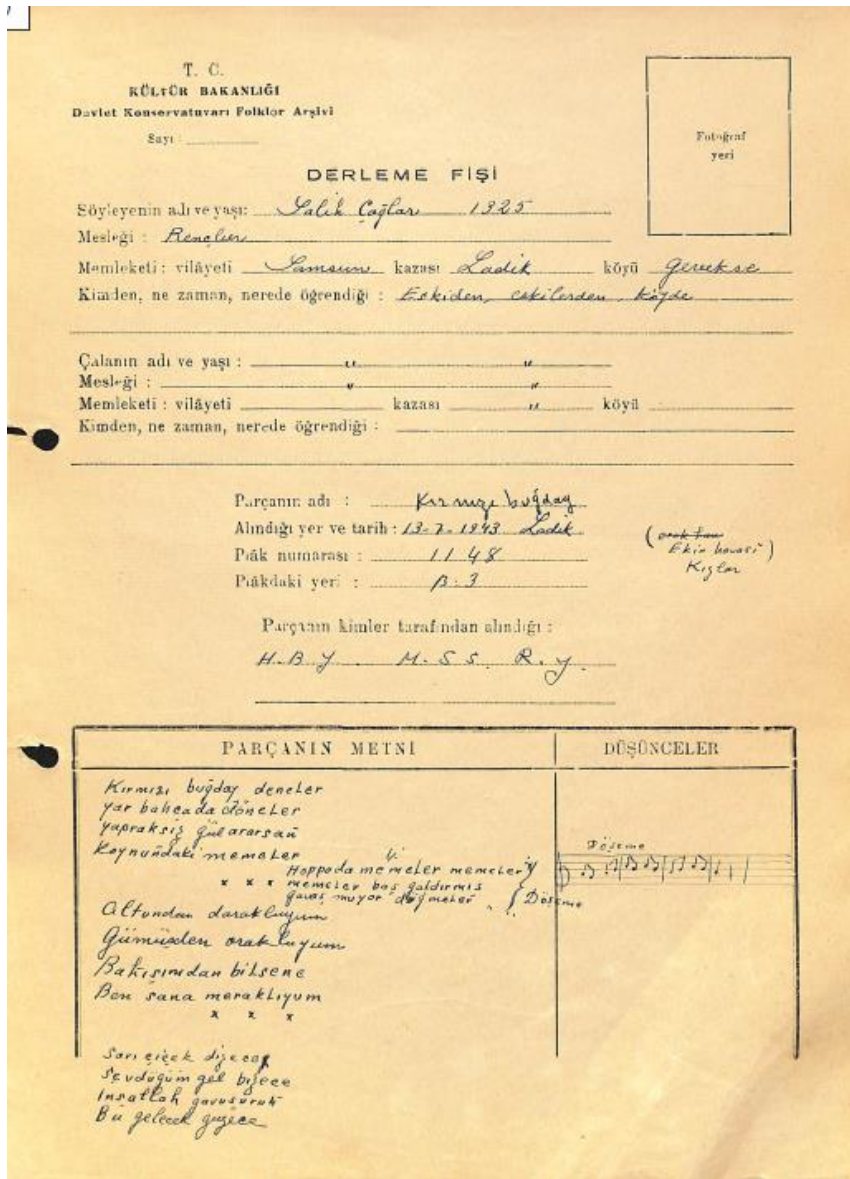 T. C.
KÜLTÜR BAKANLIĞI
Devlet Konservatuvarı Folklor Arşivi
Sayı :
Fotoğraf
yeri
DERLEME FİŞİ
Söyleyenin adı ve yaşı: Salih Çağlar 1325
Mesleği : Rençber
Memleketi : vilâyeti Samsun kazası Ladik köyü
Kimden, ne zaman, nerede öğrendiği : Eskiden, eskilerden, köyde
Çalanın adı ve yaşı : " "
Mesleği : " "
Memleketi : vilâyeti kazası " köyü
Kimden, ne zaman, nerede öğrendiği :
Parçanın adı : Kırmızı buğday
Alındığı yer ve tarih : 13-7-1943 Ladik
Plâk numarası : 1148
Plâkdaki yeri : B-3
(
Ekin havası)
Kızlar
Parçanın kimler tarafından alındığı :
H.B.Y. M.S.S. R.Y.
PARÇANIN METNİ
DÜŞÜNCELER
Kırmızı buğday deneler
Yar bahcada döneler
yapraksız gül ararsan
Koynundaki memeler
Hoppada memeler memeler
x x x memeler baş galdırmış
düğmeler
Döşeme
Döşeme
Altundan daraklıyım
Gümüşden oraklıyım
Bakışımdan bilsene
Ben sana meraklıyım
x x x
Sarı çiçek
Sevdüğüm gel bizece
İnşallah gavuşuruk
Bu gelecek güzece